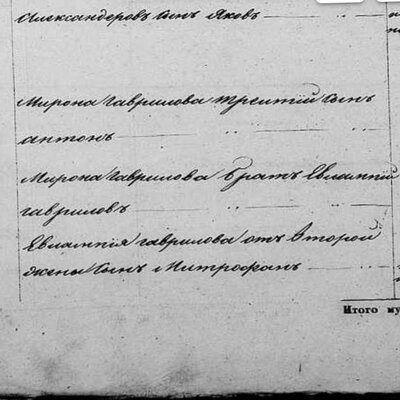 Александровъ сынъ Яковъ
Мирона Гаврилова третий сынъ
антонъ
Мирона Гаврилова братъ Евлампий
гавриловъ
Евлампия гаврилова отъ второй
жены сынъ Митрофанъ
Итого му